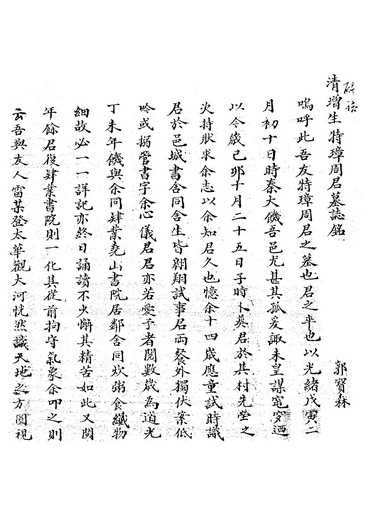 清增生特璋周君墓誌銘
郭寶森
嗚呼此吾友特璋周君之墓也君之卒也以光緒戊寅二
月初十日時秦大饑吾邑尤甚其孤爰諏未皇謀窀穸迺
以今歲己卯十月二十五日子時卜葬君於其村先塋之
次持狀求余志以余知君久也憶余十四歲應童試時識
君於邑城書舍同舍生皆翱翔試事君兩餐外獨伏案低
吟或搦管書字余心儀君君亦若愛予者閱數歲為道光
丁未年饑與余同肄業堯山書院居鄰舍同炊粥食纖物
細故必一一詳記亦終日誦讀不少懈其精苦如此又閱
年餘君復肄業書院則一化其從前拘守氣象余叩之則
云吾與友人雷某登太華觀大河恍然識天地之方圓視